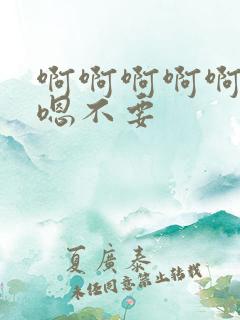 啊啊啊啊啊
嗯不要
夏廣泰
未任同意禁止转载